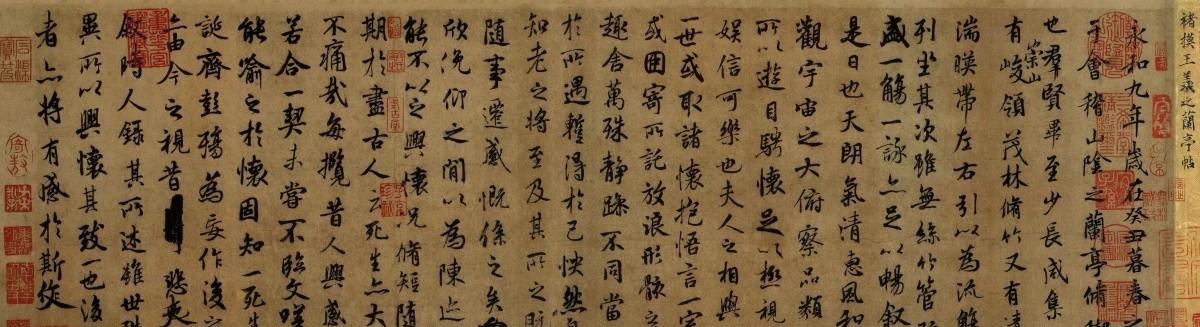 褚摸王羲之蘭亭帖
永和九年歲在癸丑暮春之
于會稽山陰之蘭亭脩
也羣賢畢至少長咸集
有崇山峻領茂林脩竹又有清
湍暎帶左右引以為流觴
列坐其次雖無絲竹管
盛一觴一詠亦足以暢敘
是日也天朗氣清惠風和
觀宇宙之大俯察品類
所以遊目騁懷足以極視
娛信可樂也夫人之相與
一世或取諸懷抱悟言一室
或因寄所託放浪形骸之
趣舍萬殊靜躁不同當
於所遇蹔得於己怏然自
知老之將至及其所之既
隨事遷感慨係之矣
欣俛仰之閒以為陳迹
能不以之興懷況脩短隨
期於盡古人云死生亦大
不痛哉每攬昔人興感
若合一契未嘗不臨文嗟
能喻之於懷固知一死生
誕齊彭殤為妄作後之
亦由今之視昔悲夫
敘時人錄其所述雖世殊
異所以興懷其致一也後
者亦將有感於斯文